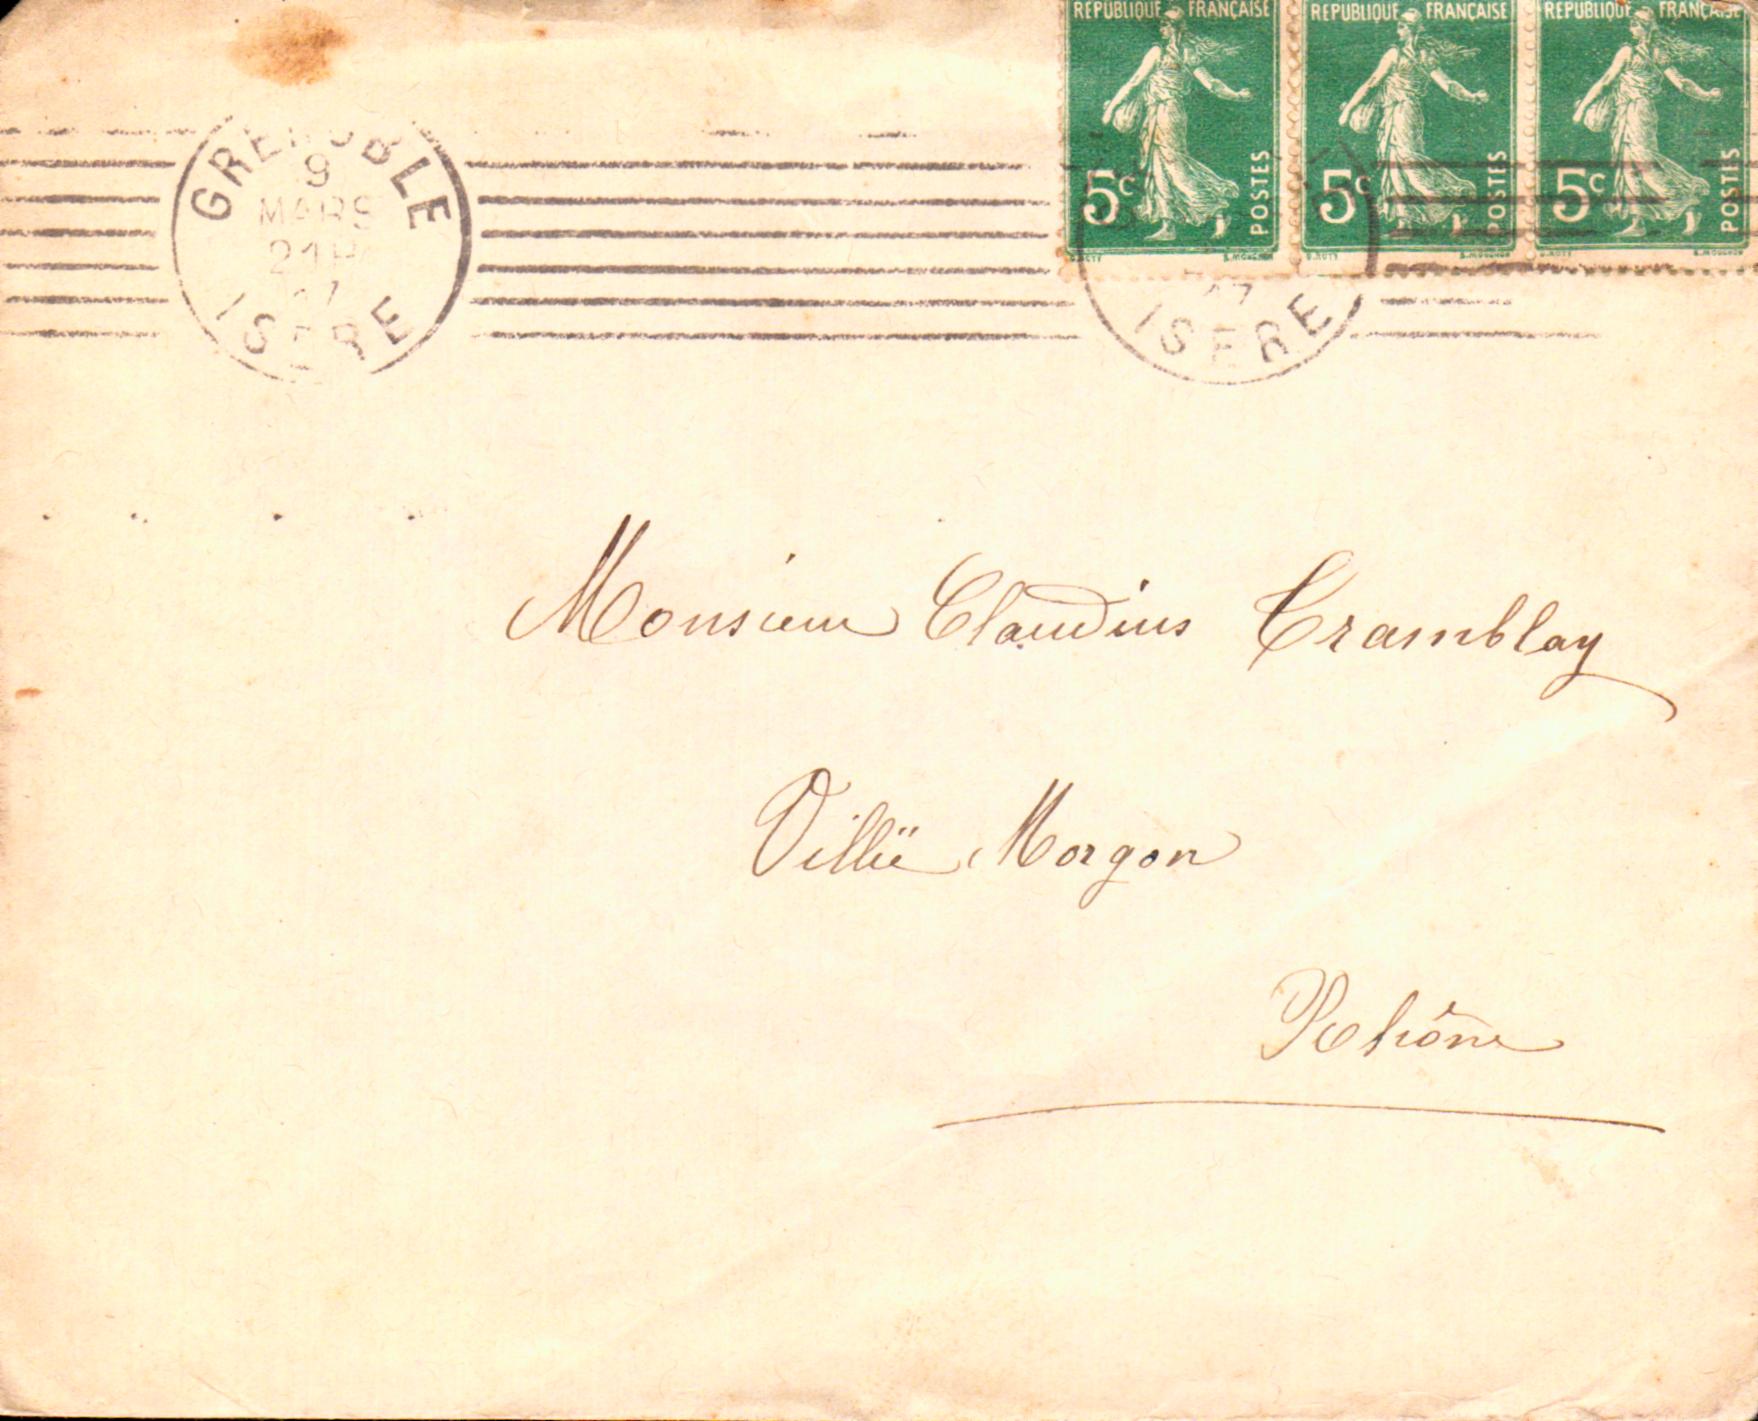 RÉPUBLIQUE FRANÇAISE RÉPUBLIQUE FRANÇAISE RÉPUBLIQUE FRANÇAISE
5c POSTES 5c POSTES 5c POSTES
GRENOBLE
9
MARS
21H
17
ISERE
17
ISERE
Monsieur Claudius Tramblay
Villië Morgon
Rhône